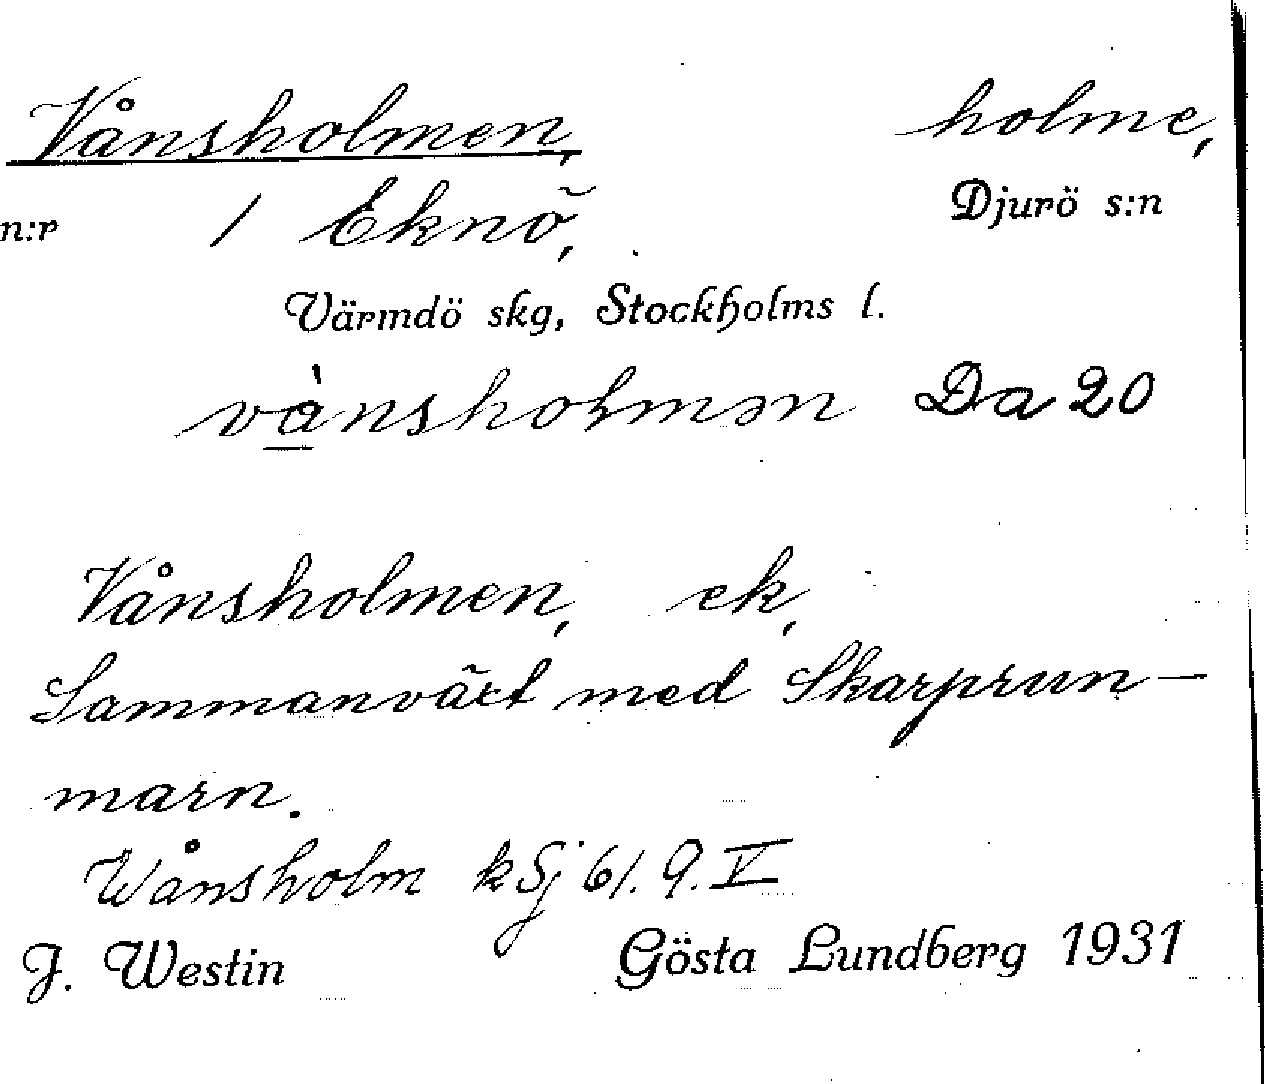 Vånsholmen, holme,
n:r 1 Eknö, Djurö s:n
Värmdö skg, Stockholms l.
vànsholmən Da 20
Vånsholmen, ek,
Sammanväxt med Skarprun-
marn.
Wånsholm kSj 61. 9. V
J. Westin Gösta Lundberg 1931